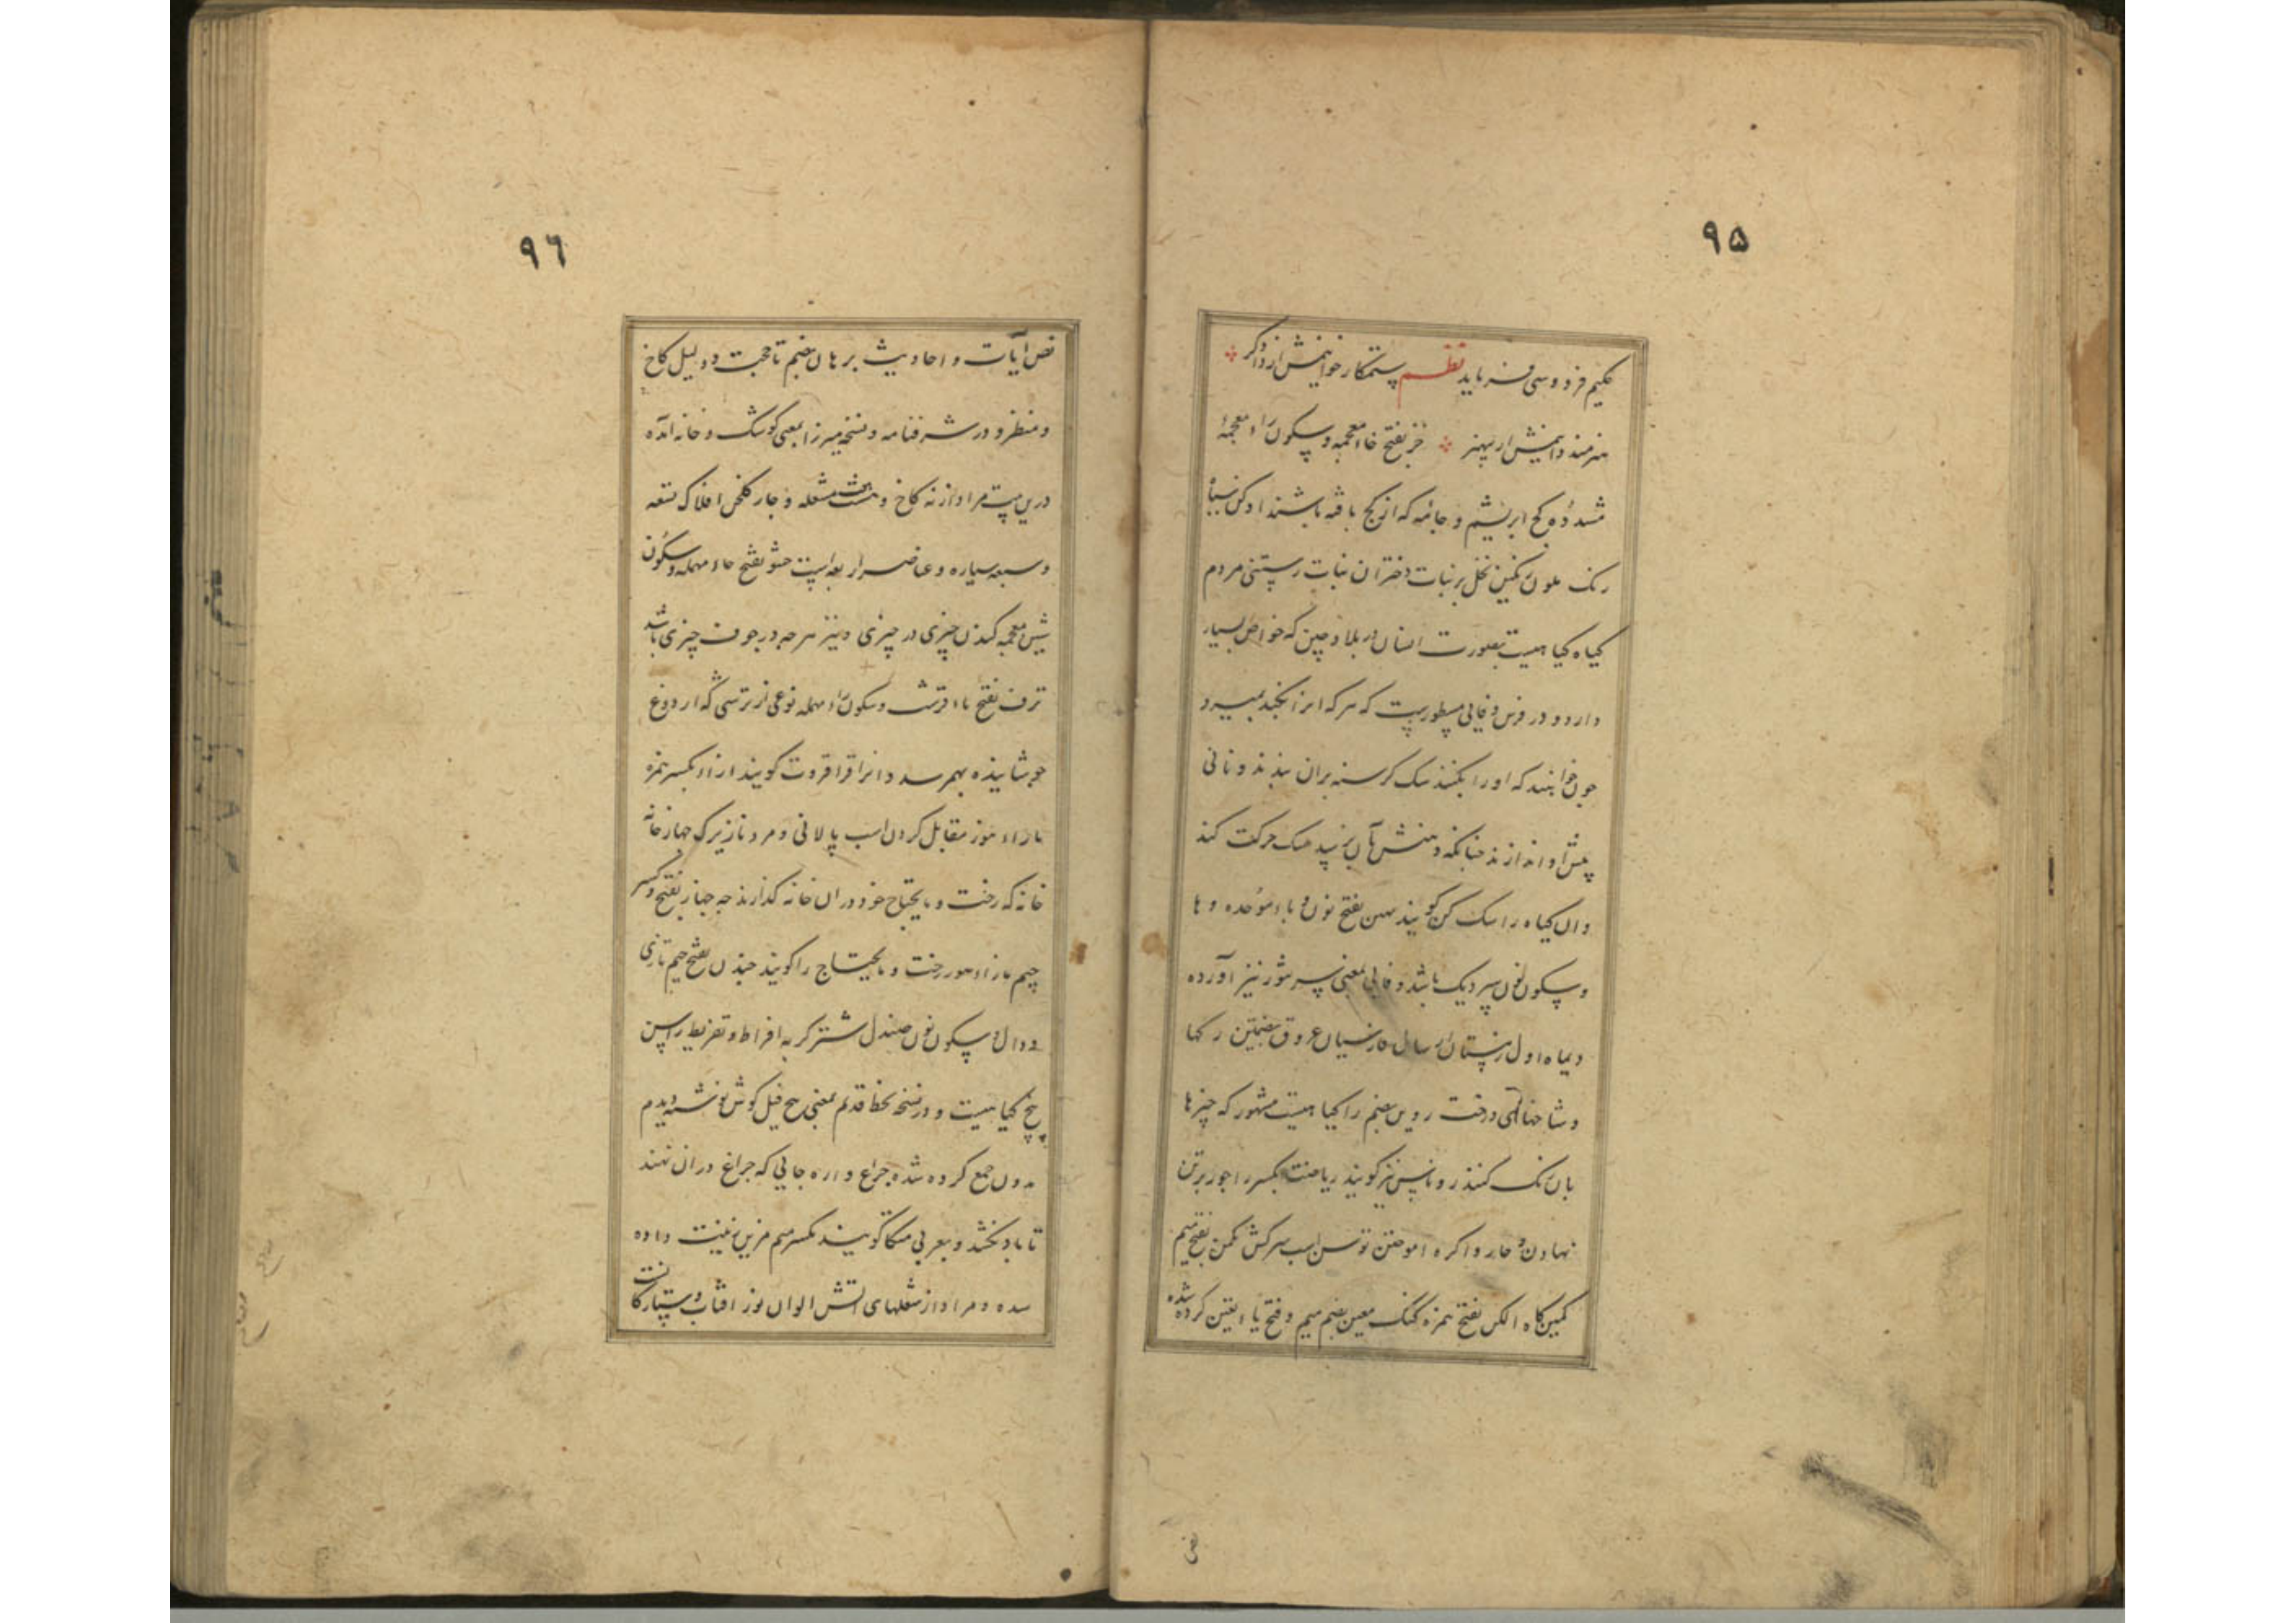 ۹۵
حکیم فردوسی فرماید نظم ستمکار خوانیمش ار دادگر
هنرمند دانیمش ار بی هنر خز بفتح خاء معجمه و سکون زاء معجمهٔ
مشدده کج ابریشم و جامه که از کج بافته باشند ادکن سیاه
رنک ملون رنکین نخل بر نبات دختران نبات رستنی مردم
کیاه کیاهیست بصورت انسان در بلاد چین که خواص بسیار
دارد و در فرس وفایی مسطورست که هر که انرا بکند بمیرد
چون خواهند که اورا بکنند سک کرسنه بران بندند و نانی
پیش او اندازند چنانکه دهنش بآن نرسد سک حرکت کند
وان کیاه را سک کن کویند نهبن بفتح نون و باء موحده و ها
و سکون نون سر دیک باشد و وفایی بمعنی سر تنور نیز آورده
دیماه اول زمستان سال فارسیان عروق بضمتین رکها
و شاخهای درخت روین بضم را کیاهیست مشهور که چیزها
بان رنک کنند و روناس نیز کویند ریاضت بکسر را جور بر تن
نهادن و چاروا کره اموختن توسن اسب سرکش مکمن بفتح میم
کمین کاه الکن بفتح همزه کنک معین بضم میم و فتح یا تعیین کرده شده
نص
۹٦
نص آیات و احادیث برهان بضم تا حجت و دلیل کاخ
و منظر و در شرفنامه و نسخه میرزا بمعنی کوشک و خانه آمده
درین بیت مراد از نه کاخ و هشت مشعله و چار کلخن افلاک تسعه
و سبعه سیاره و عناصر اربعه است حشو بفتح حاء مهمله و سکون
شین معجمه کندن چیزی در چیزی و نیز هر چه در جوف چیزی باشد
ترف بفتح تاء قرشت و سکون راء مهمله نوعی از ترشی که از دوغ
جوشانیده بهم رسد و انرا قراقروت کویند ازاء بکسر همزه
با زاء هوز مقابل کردن اسب پالانی و مرد نازیرک جهاز خانه
خانه که رخت و مایحتاج خود دران خانه کذارند چه جهاز بفتح و کسر
جیم با زاء هوز رخت و مایحتاج را کویند جندن بفتح جیم تازی
و دال و سکون نون صندل شترکربه افراط و تفریط راسن
بیخ کیاهیست و در نسخه بخط قدیم بمعنی بیخ فیل کوش نوشته دیدم
مدون جمع کرده شده چراغ واره جایی که چراغ دران نهند
تا باد نکشد و بعربی مشکاة کویند بکسر میم مزین زینت داده
شده و مراد از شعلهای آتش الوان نور افتاب و ستارکانست